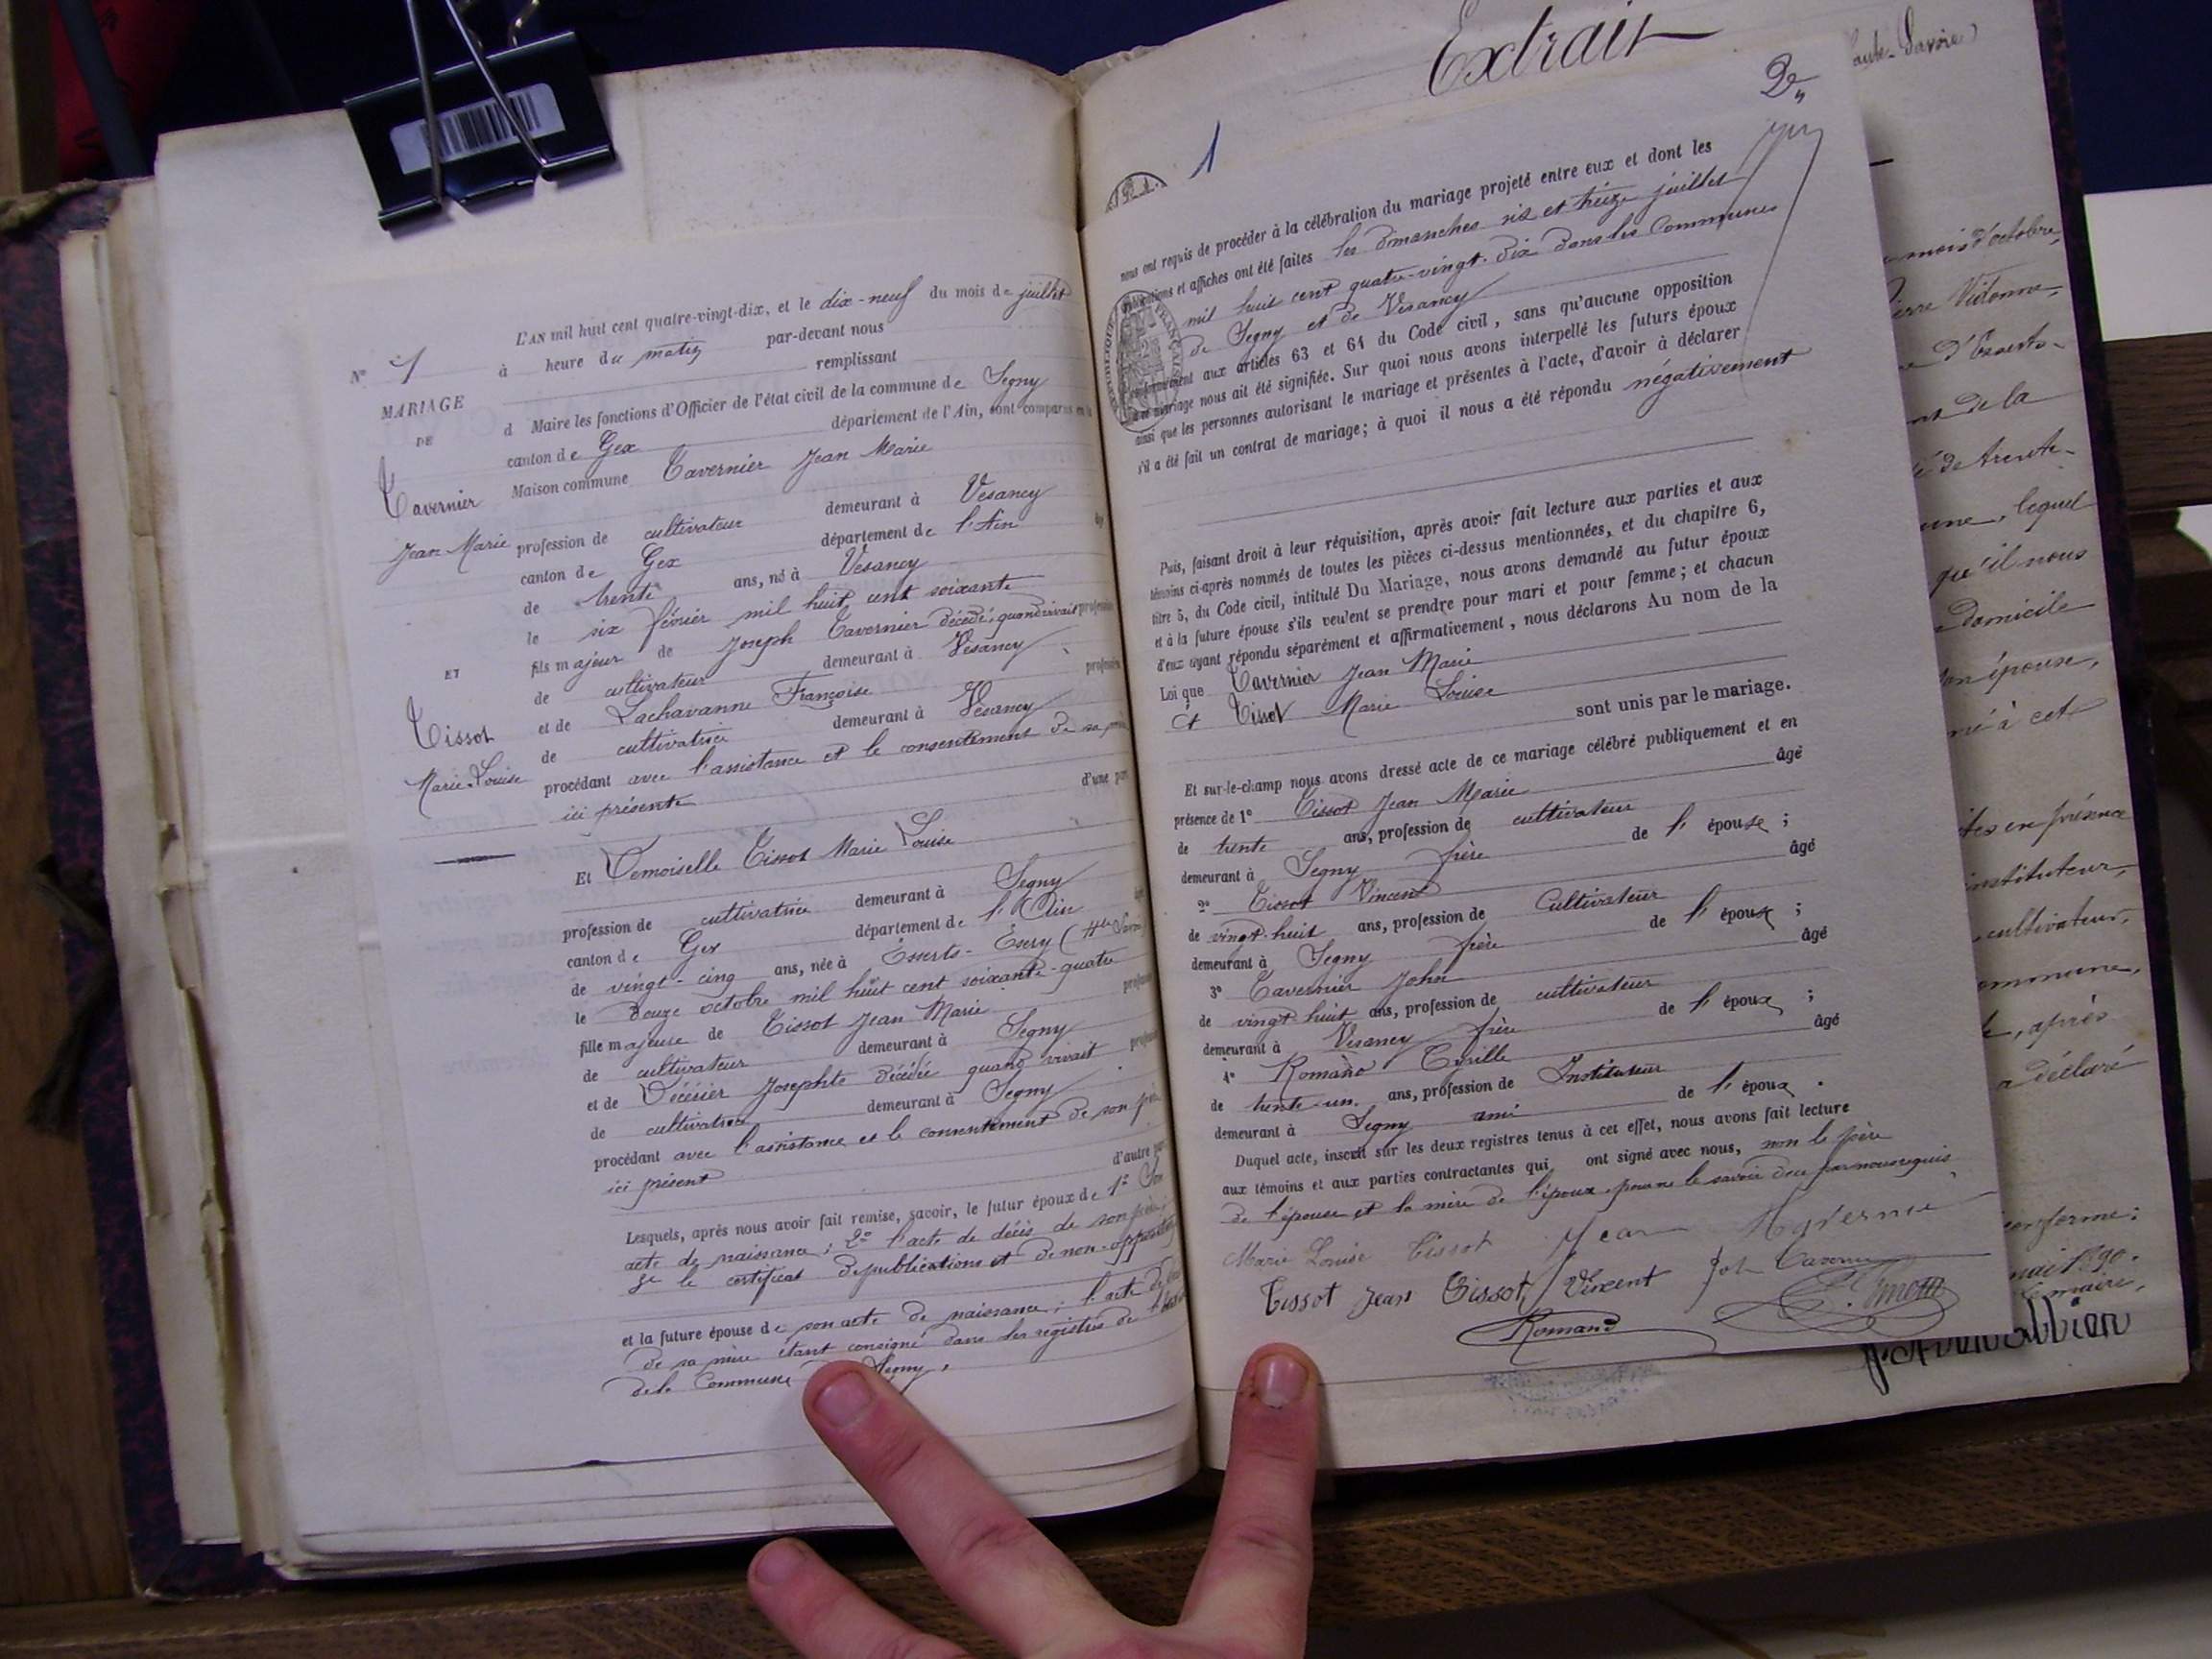 L'AN mil huit cent quatre-vingt-dix, et le dix-neuf du mois de juillet
N° 1 à heure du matin par-devant nous
remplissant
MARIAGE
DE
d Maire les fonctions d'Officier de l'état civil de la commune de Segny
canton de Gex département de l'Ain, sont comparus en la
Maison commune Tavernier Jean Marie
Tavernier
Jean Marie
profession de cultivateur demeurant à Vesancy
canton de Gex département de l'Ain
de trente ans, né à Vesancy
le six février mil huit cent soixante
fils majeur de Joseph Tavernier décédé, quand vivait profession
de cultivateur demeurant à Vesancy
ET
Tissot
Marie-Louise
et de Lachavanne Françoise
de cultivatrice demeurant à Vesancy
procédant avec l'assistance et le consentement de sa
ici présente d'une part
Et Demoiselle Tissot Marie Louise
profession de cultivatrice demeurant à Segny
canton de Gex département de l'Ain
de vingt-cinq ans, née à Esserts-Esery (Hte Savoie)
le douze octobre mil huit cent soixante-quatre
fille majeure de Tissot Jean Marie
de cultivateur demeurant à Segny
et de Décisier Josephte décédée quand vivait
de cultivatrice demeurant à Segny
procédant avec l'assistance et le consentement de son père
ici présent d'autre part
Lesquels, après nous avoir fait remise, savoir, le futur époux de 1° Son
acte de naissance; 2° l'acte de décès de son père;
3° le certificat de publications et de non-opposition
et la future épouse de son acte de naissance; l'acte de
de sa mère étant consigné dans les registres de
de la Commune Segny.
Extrait
1
2
nous ont requis de procéder à la célébration du mariage projeté entre eux et dont les
publications et affiches ont été faites les dimanches six et treize juillet
mil huit cent quatre-vingt-dix dans les Communes
de Segny et de Vesancy
conformément aux articles 63 et 64 du Code civil, sans qu'aucune opposition
à ce mariage nous ait été signifiée. Sur quoi nous avons interpellé les futurs époux
ainsi que les personnes autorisant le mariage et présentes à l'acte, d'avoir à déclarer
s'il a été fait un contrat de mariage; à quoi il nous a été répondu négativement
Puis, faisant droit à leur réquisition, après avoir fait lecture aux parties et aux
témoins ci-après nommés de toutes les pièces ci-dessus mentionnées, et du chapitre 6,
titre 5, du Code civil, intitulé Du Mariage, nous avons demandé au futur époux
et à la future épouse s'ils veulent se prendre pour mari et pour femme; et chacun
d'eux ayant répondu séparément et affirmativement, nous déclarons Au nom de la
Loi que Tavernier Jean Marie
et Tissot Marie Louise
sont unis par le mariage.
Et sur-le-champ nous avons dressé acte de ce mariage célébré publiquement et en
présence de 1° Tissot Jean Marie âgé
de trente ans, profession de cultivateur
demeurant à Segny frère de l'épouse;
2° Tissot Vincent âgé
de vingt-huit ans, profession de Cultivateur
demeurant à Segny frère de l'épouse;
3° Tavernier John âgé
de vingt-huit ans, profession de cultivateur
demeurant à Vesancy frère de l'époux;
4° Romand Cyrille âgé
de trente-un ans, profession de Instituteur
demeurant à Segny ami de l'époux.
Duquel acte, inscrit sur les deux registres tenus à cet effet, nous avons fait lecture
aux témoins et aux parties contractantes qui ont signé avec nous, non le père
de l'épouse et la mère de l'époux pour ne le savoir de ce par nous requis
Marie Louise Tissot Jean Tavernier
Tissot Jean Tissot Vincent John Tavernier
Romand
aute-Savoie)
mois d'octobre,
ierre Victorine,
d'Esserts-
de la
de trente-
lequel
qu'il nous
domicile
son épouse,
à cet
en présence
instituteur,
cultivateur,
commune,
après
a déclaré
conforme:
mai 1890.
maire,